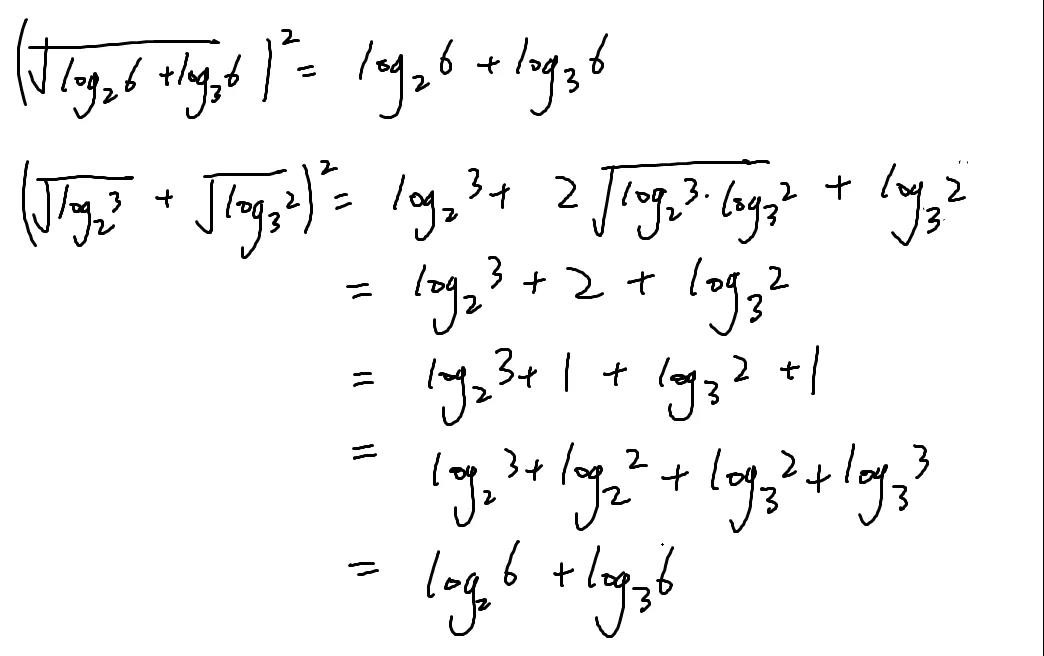 (√(log₂6 + log₃6))² = log₂6 + log₃6
(√(log₂3) + √(log₃2))² = log₂3 + 2√(log₂3·log₃2) + log₃2
= log₂3 + 2 + log₃2
= log₂3 + 1 + log₃2 + 1
= log₂3 + log₂2 + log₃2 + log₃3
= log₂6 + log₃6